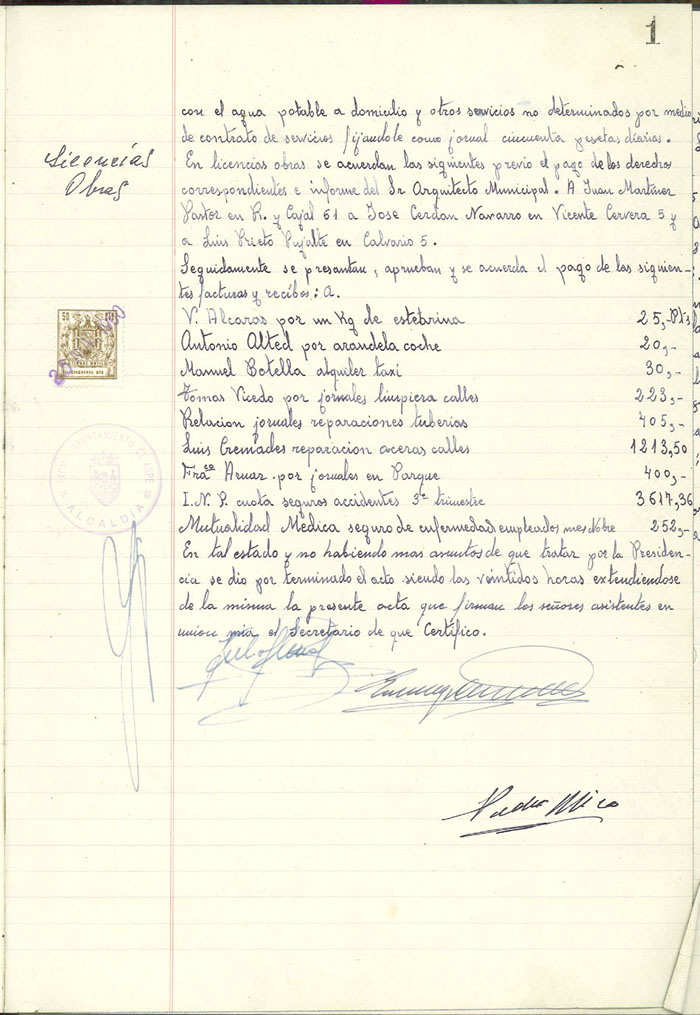 1
con el agua potable a domicilio y otros servicios no determinados por medio
de contrato de servicios fijandole como jornal cincuenta pesetas diarias.
Licencias
Obras
En licencias obras se acuerdan las siguientes previo el pago de los derechos
correspondientes e informe del Sr Arquitecto Municipal. A Juan Martinez
Pastor en R. y Cajal 61 a Jose Cerdan Navarro en Vicente Cervera 5 y
a Luis Prieto Pujalte en Calvario 5.
Seguidamente se presantan, aprueban y se acuerda el pago de las siguien-
tes facturas y recibos: A.
V. Alcaras por un Kg de estearina 25,- Pts
Antonio Alted por arandela coche 20,-
Manuel Botella alquiler taxi 30,-
Tomas Vicedo por jornales limpiera calles 223,-
Relacion jornales reparaciones tuberias 405,-
Luis Cremades reparacion aceras calles 1213,50
Franco Aznar por jornales en Parque 400,-
I.N.P. cuota seguros accidentes 3er trimestre 3617,36
Mutualidad Medica seguro de enfermedad empleados mes 252,-
En tal estado y no habiendo mas asuntos de que tratar por la Presiden-
cia se dio por terminado el acto siendo las veintidos horas extendiendose
de la misma la presente acta que firman los señores asistentes en
union mia el Secretario de que Certifico.
50
AYUNTAMIENTO DE ASPE
ALCALDIA
Pedro Mico